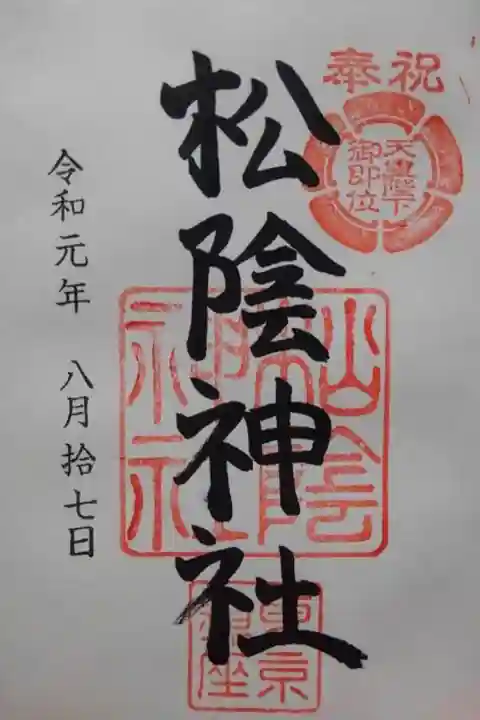 奉祝
天皇陛下
御即位
松陰神社
松陰
神社
東京
令和元年 八月拾七日